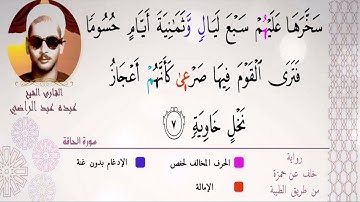 سَخَّرَهَا عَلَيْهُمْ سَبْعَ لَيَالٍ وَّثَمَٰنِيَةَ أَيَّامٍ حُسُومًا
فَتَرَى ٱلْقَوْمَ فِيهَا صَرْعَىٰ كَأَنَّهُمْ أَعْجَازُ
نَخْلٍ خَاوِيَةٍ ٧
القارئ الشيخ
عبده عبد الراضي
سورة الحاقة
رواية
خلف عن حمزة
من طريق الطيبة
الحرف المخالف لحفص
الإدغام بدون غنة
الإمالة